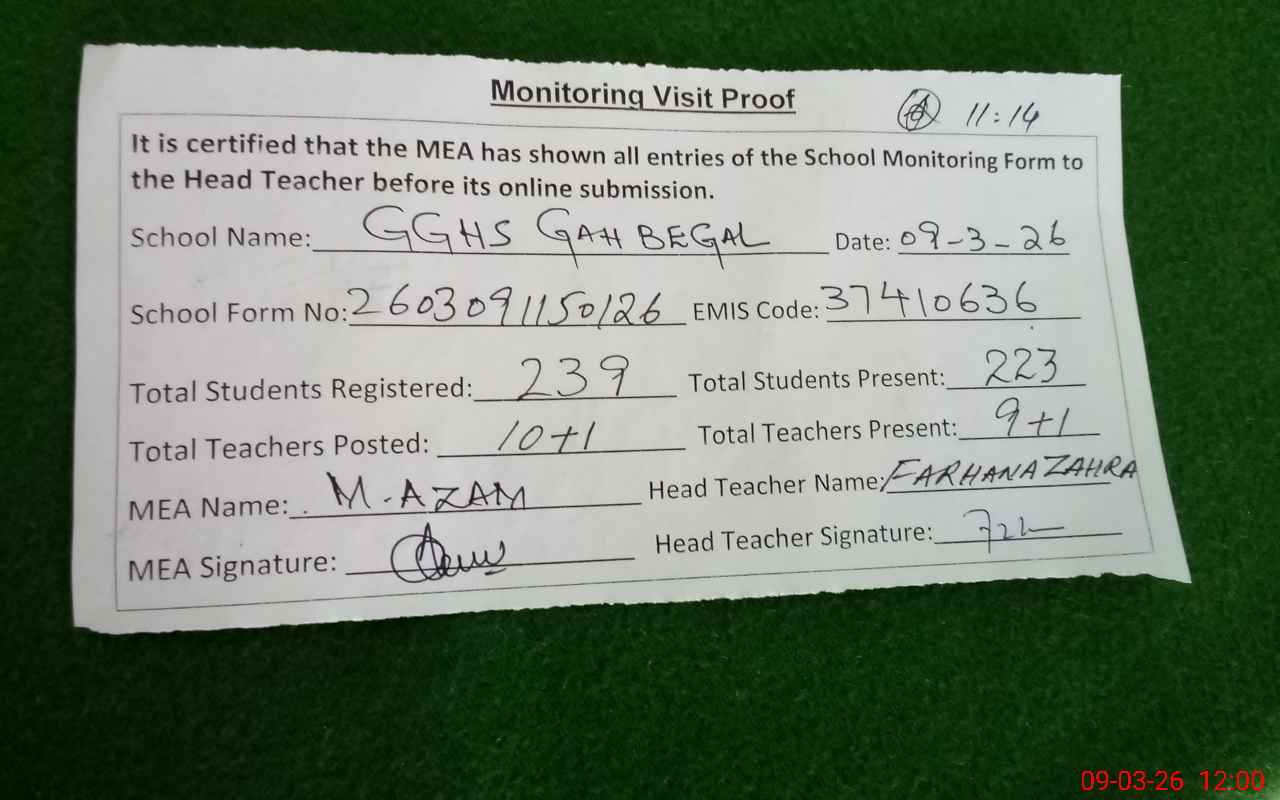 Monitoring Visit Proof
11:14
It is certified that the MEA has shown all entries of the School Monitoring Form to
the Head Teacher before its online submission.
School Name: GGHS GAH BEGAL Date: 09-3-26
School Form No: 2603091150126 EMIS Code: 37410636
Total Students Registered: 239 Total Students Present: 223
Total Teachers Posted: 10+1 Total Teachers Present: 9+1
MEA Name: M. AZAM Head Teacher Name: FARHANA ZAHRA
MEA Signature: Head Teacher Signature:
09-03-26 12:00